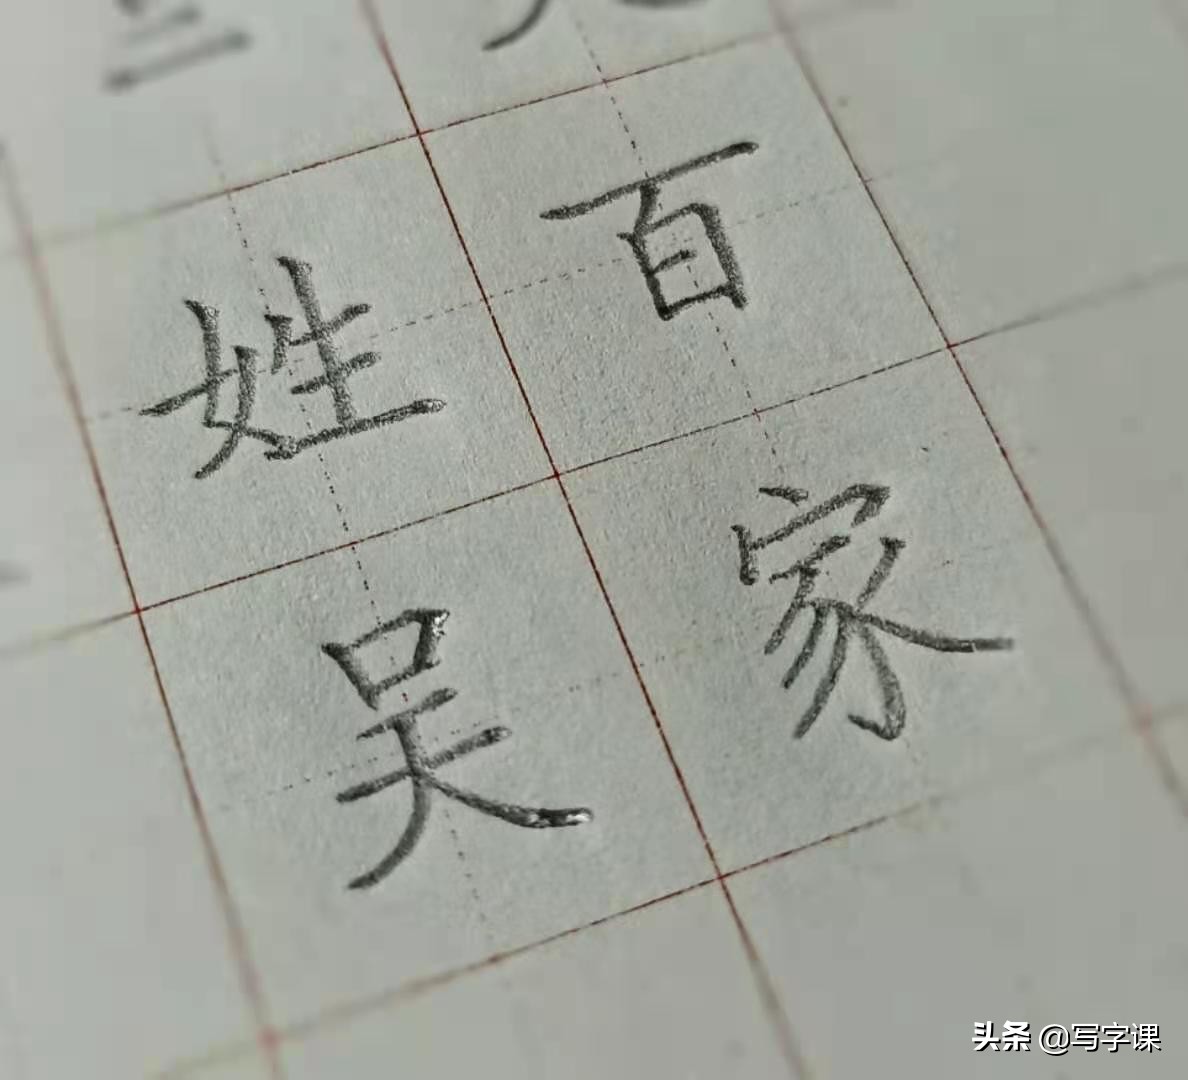 百家
姓吴
头条 @写字课